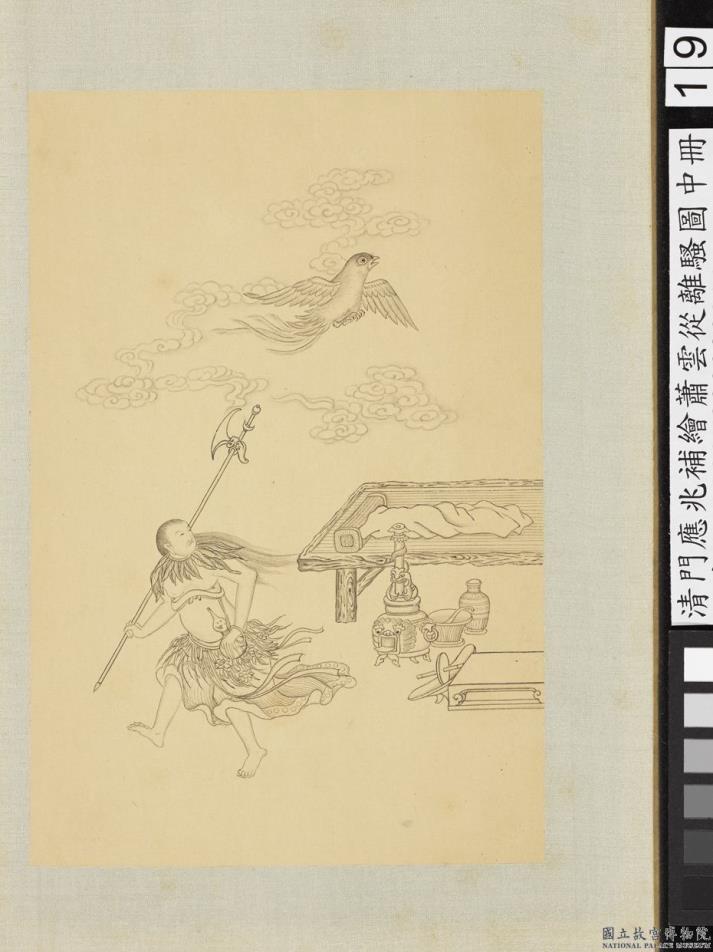 19
清門應兆補繪蕭雲從離騷圖中冊
國立故宮博物院
NATIONAL PALACE MUSEUM